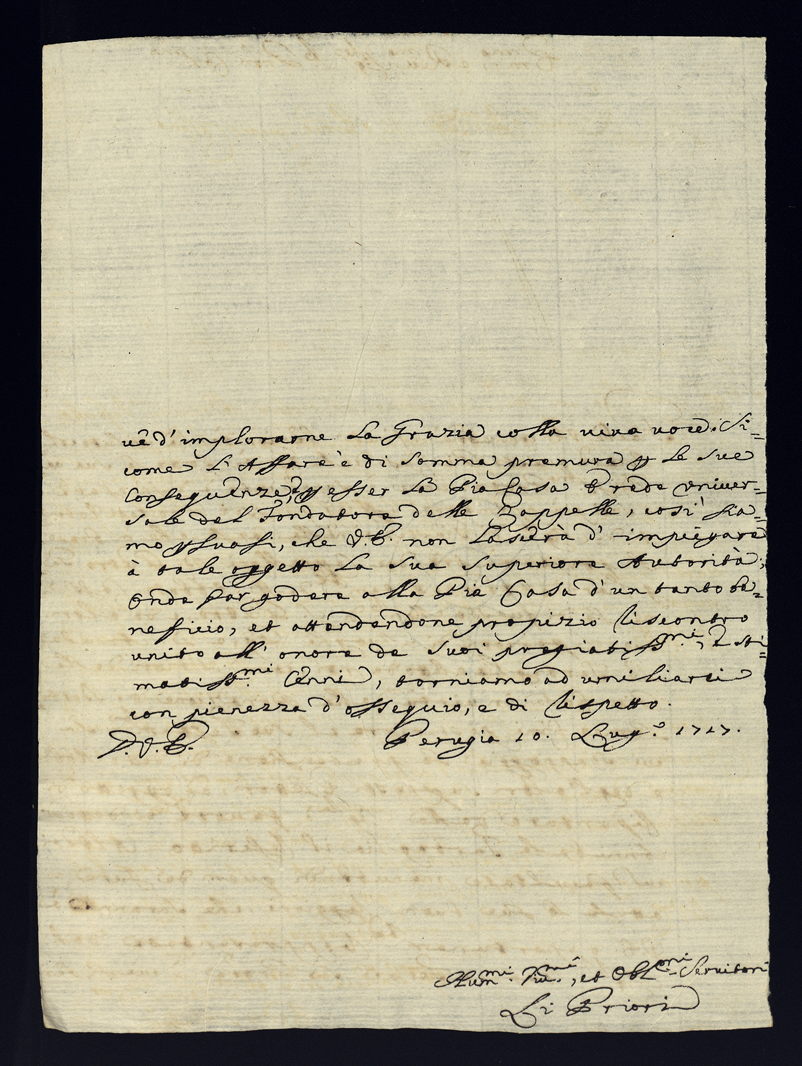 vê d'implorarne la Grazia colla viva voce. Si=
come l'Affare è di somma premura p le sue
Conseguenze, p esser la Pia Casa Erede Univer=
sale del Fondatore delle Cappelle, così sia=
mo psuasi, che V.E. non lascerà d'impiegare
à tale oggetto la sua superiore Autorità,
Onde far godere alla Pia Casa d'un tanto be=
neficio, et attendendone propizio riscontro
unito all'onore de suoi pregiatiss.mi, e sti=
matiss.mi Cenni, torniamo ad umiliarci
con pienezza d'ossequio, e di rispetto.
D.V.E. Perugia 10. Lug.o 1717.
Hum.mi, et Obl.mi Servitori
Li Priori